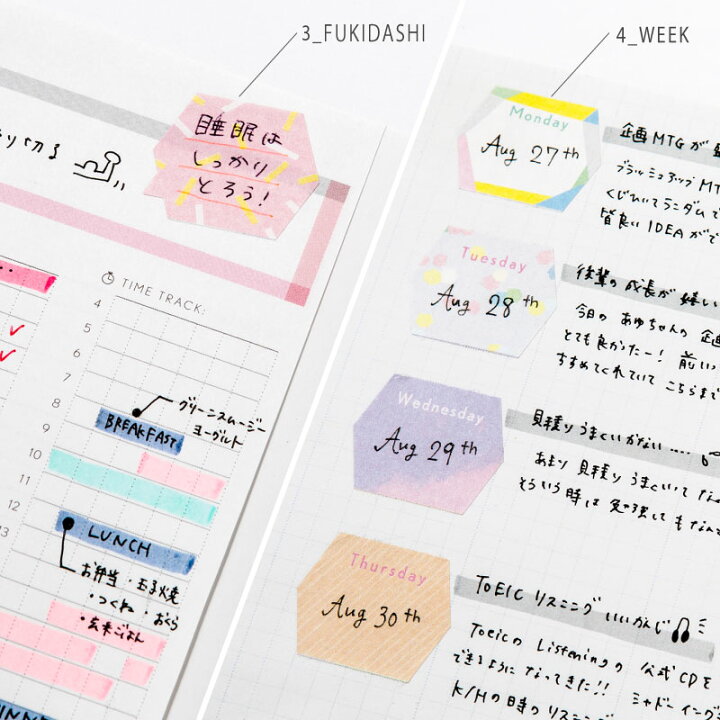 3_FUKIDASHI
睡眠は
しっかり
とろう!
TIME TRACK:
4
5
6
7
8
9
10
11
12
13
グリーンスムージー
ヨーグルト
BREAKFAST
LUNCH
お弁当・玉子焼
・つくね・おくら
・玄米ごはん
4_WEEK
Monday
Aug 27th
企画MTGが
ブラッシュアップMT
くじひいてランダムで
皆良いIDEAがで
Tuesday
Aug 28th
後輩の成長が嬉しい
今日のあゆちゃんの企画
とても良かったー!前いっ
すすめてくれていてこちらまで
Wednesday
Aug 29th
見積りうまくいかない....
あまり見積りうまくいてな
そういう時は勉強してもなん
Thursday
Aug 30th
TOEICリスニングいいかんじ
ToeicのListeningの公式CDを
できるようになってきた!!シャドーイング
K/Hの時のリスニング